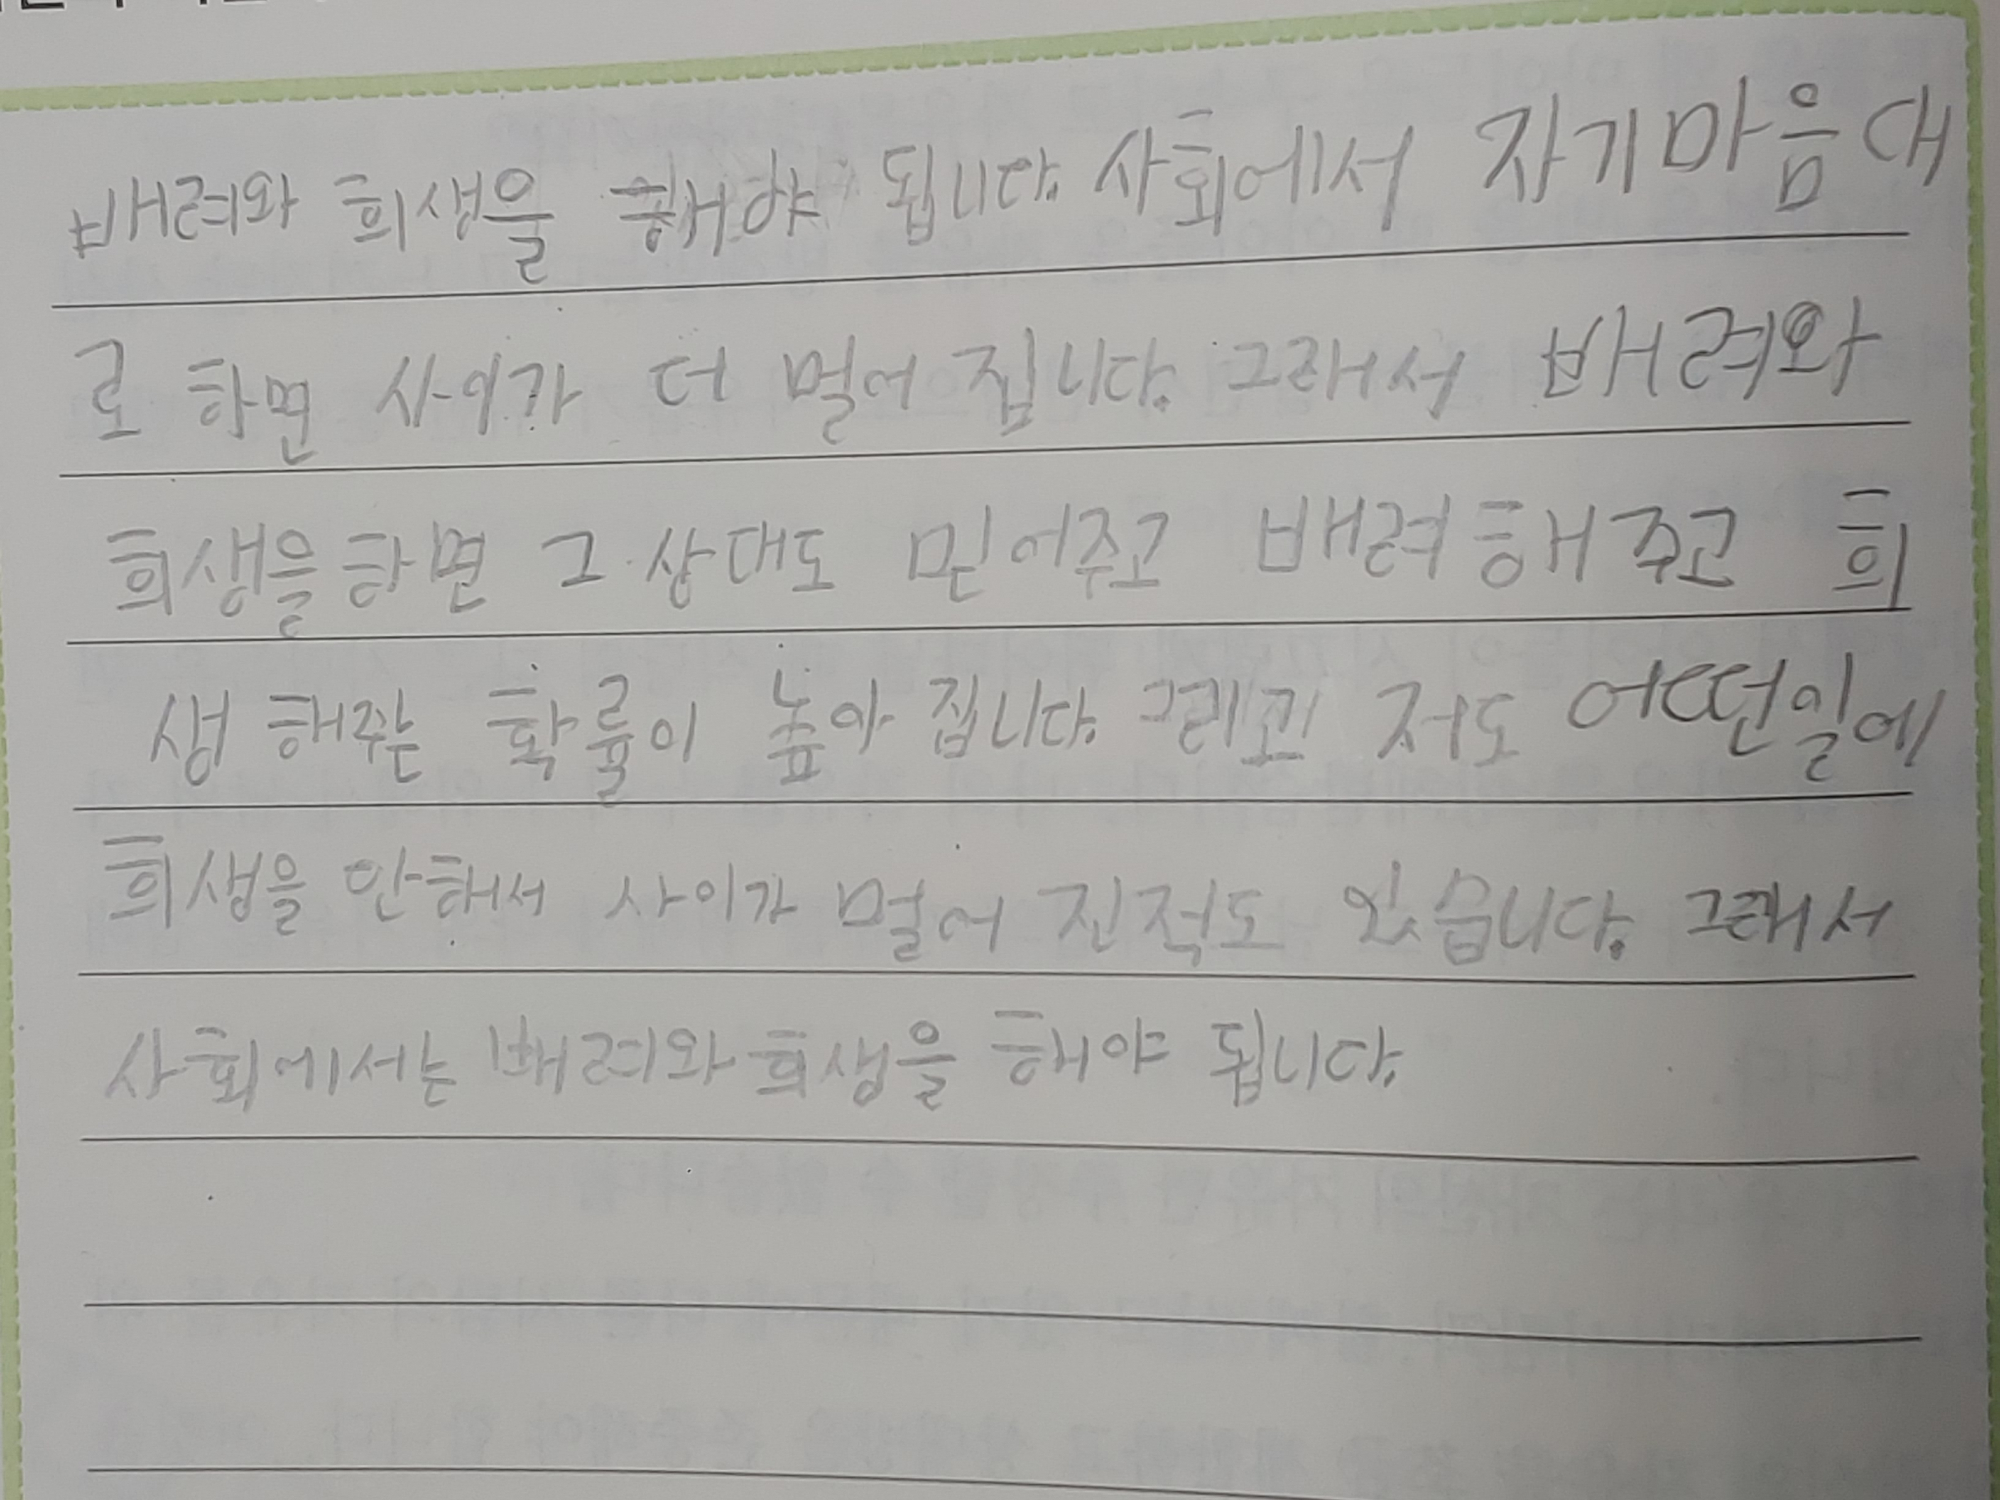 배려와 희생을 해야 됩니다. 사회에서 자기마음대
로 하면 사이가 더 멀어 집니다. 그래서 배려와
희생을하면 그 상대도 믿어주고 배려해주고 희
생 해주는 확률이 높아 집니다. 그리고 저도 어떤일에
희생을 안해서 사이가 멀어 진적도 있습니다. 그래서
사회에서는 배려와 희생을 해야 됩니다.